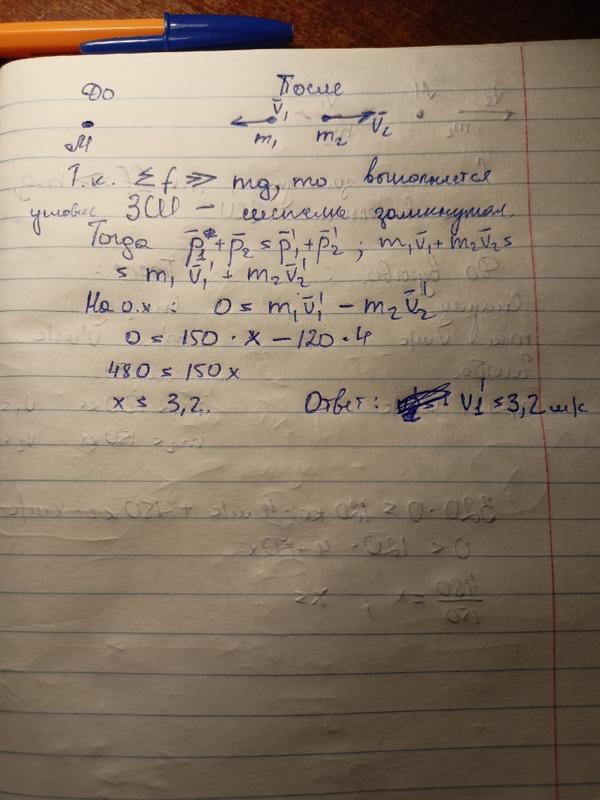 До После
M v̄₁ m₁ m₂ v̄₂
Т.к. Σf ≫ mg, то выполняется
условие ЗСИ – система замкнутая.
Тогда p̄₁+p̄₂ = p̄₁'+p̄₂' ; m₁v̄₁+m₂v̄₂ =
= m₁v̄₁'+m₂v̄₂'
На о.х : 0 = m₁v̄₁' − m₂v̄₂'
0 = 150 · x − 120 · 4
480 = 150x
x = 3,2. Ответ: v₁' = 3,2 м/с